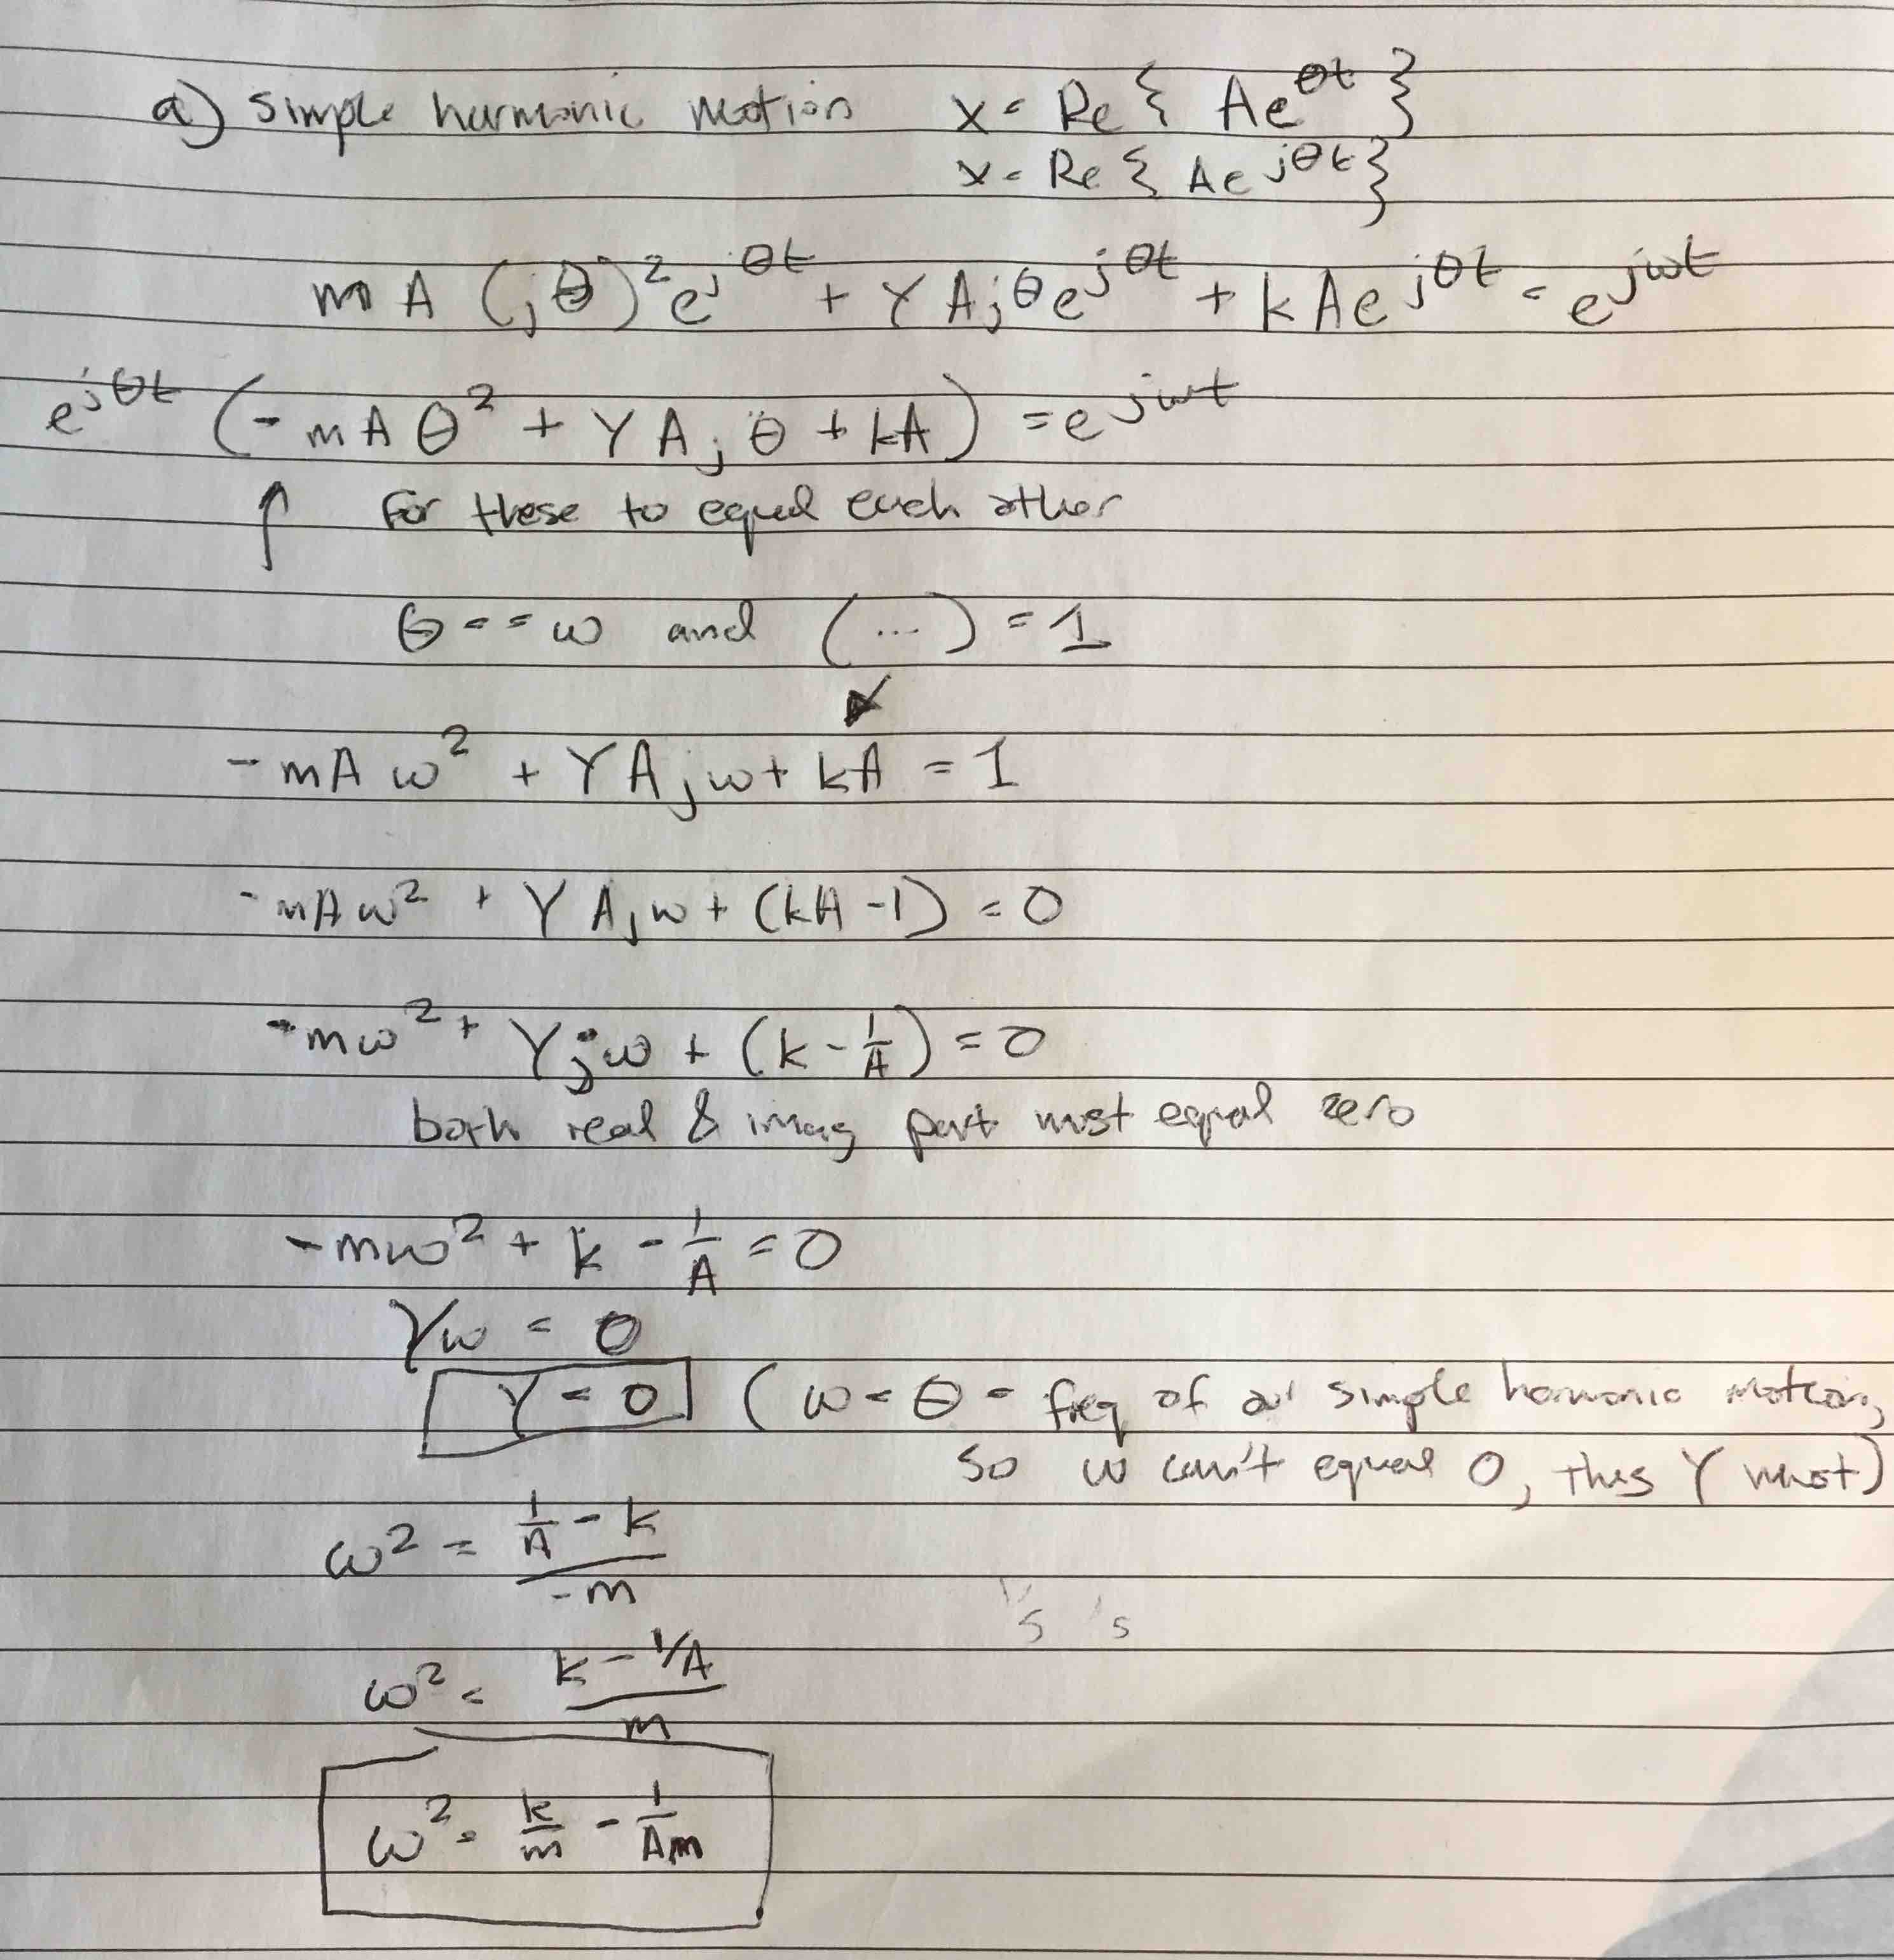 a) simple harmonic motion x = Re { Ae^θt }
x = Re { Ae^jθt }
mA (jθ)² e^jθt + γAjθe^jθt + kAe^jθt = e^jωt
e^jθt (-mAθ² + γAjθ + kA) = e^jωt
↑ For these to equal each other
θ == ω and (...) = 1
-mAω² + γAjω + kA = 1
-mAω² + γAjω + (kA - 1) = 0
-mω² + γjω + (k - 1/A) = 0
both real & imag part must equal zero
-mω² + k - 1/A = 0
γω = 0
γ = 0 (ω = θ = freq of simple harmonic motion,
so ω can't equal 0, thus γ must)
ω² = (1/A - k)/-m
ω² = (k - 1/A)/m
ω² = k/m - 1/Am